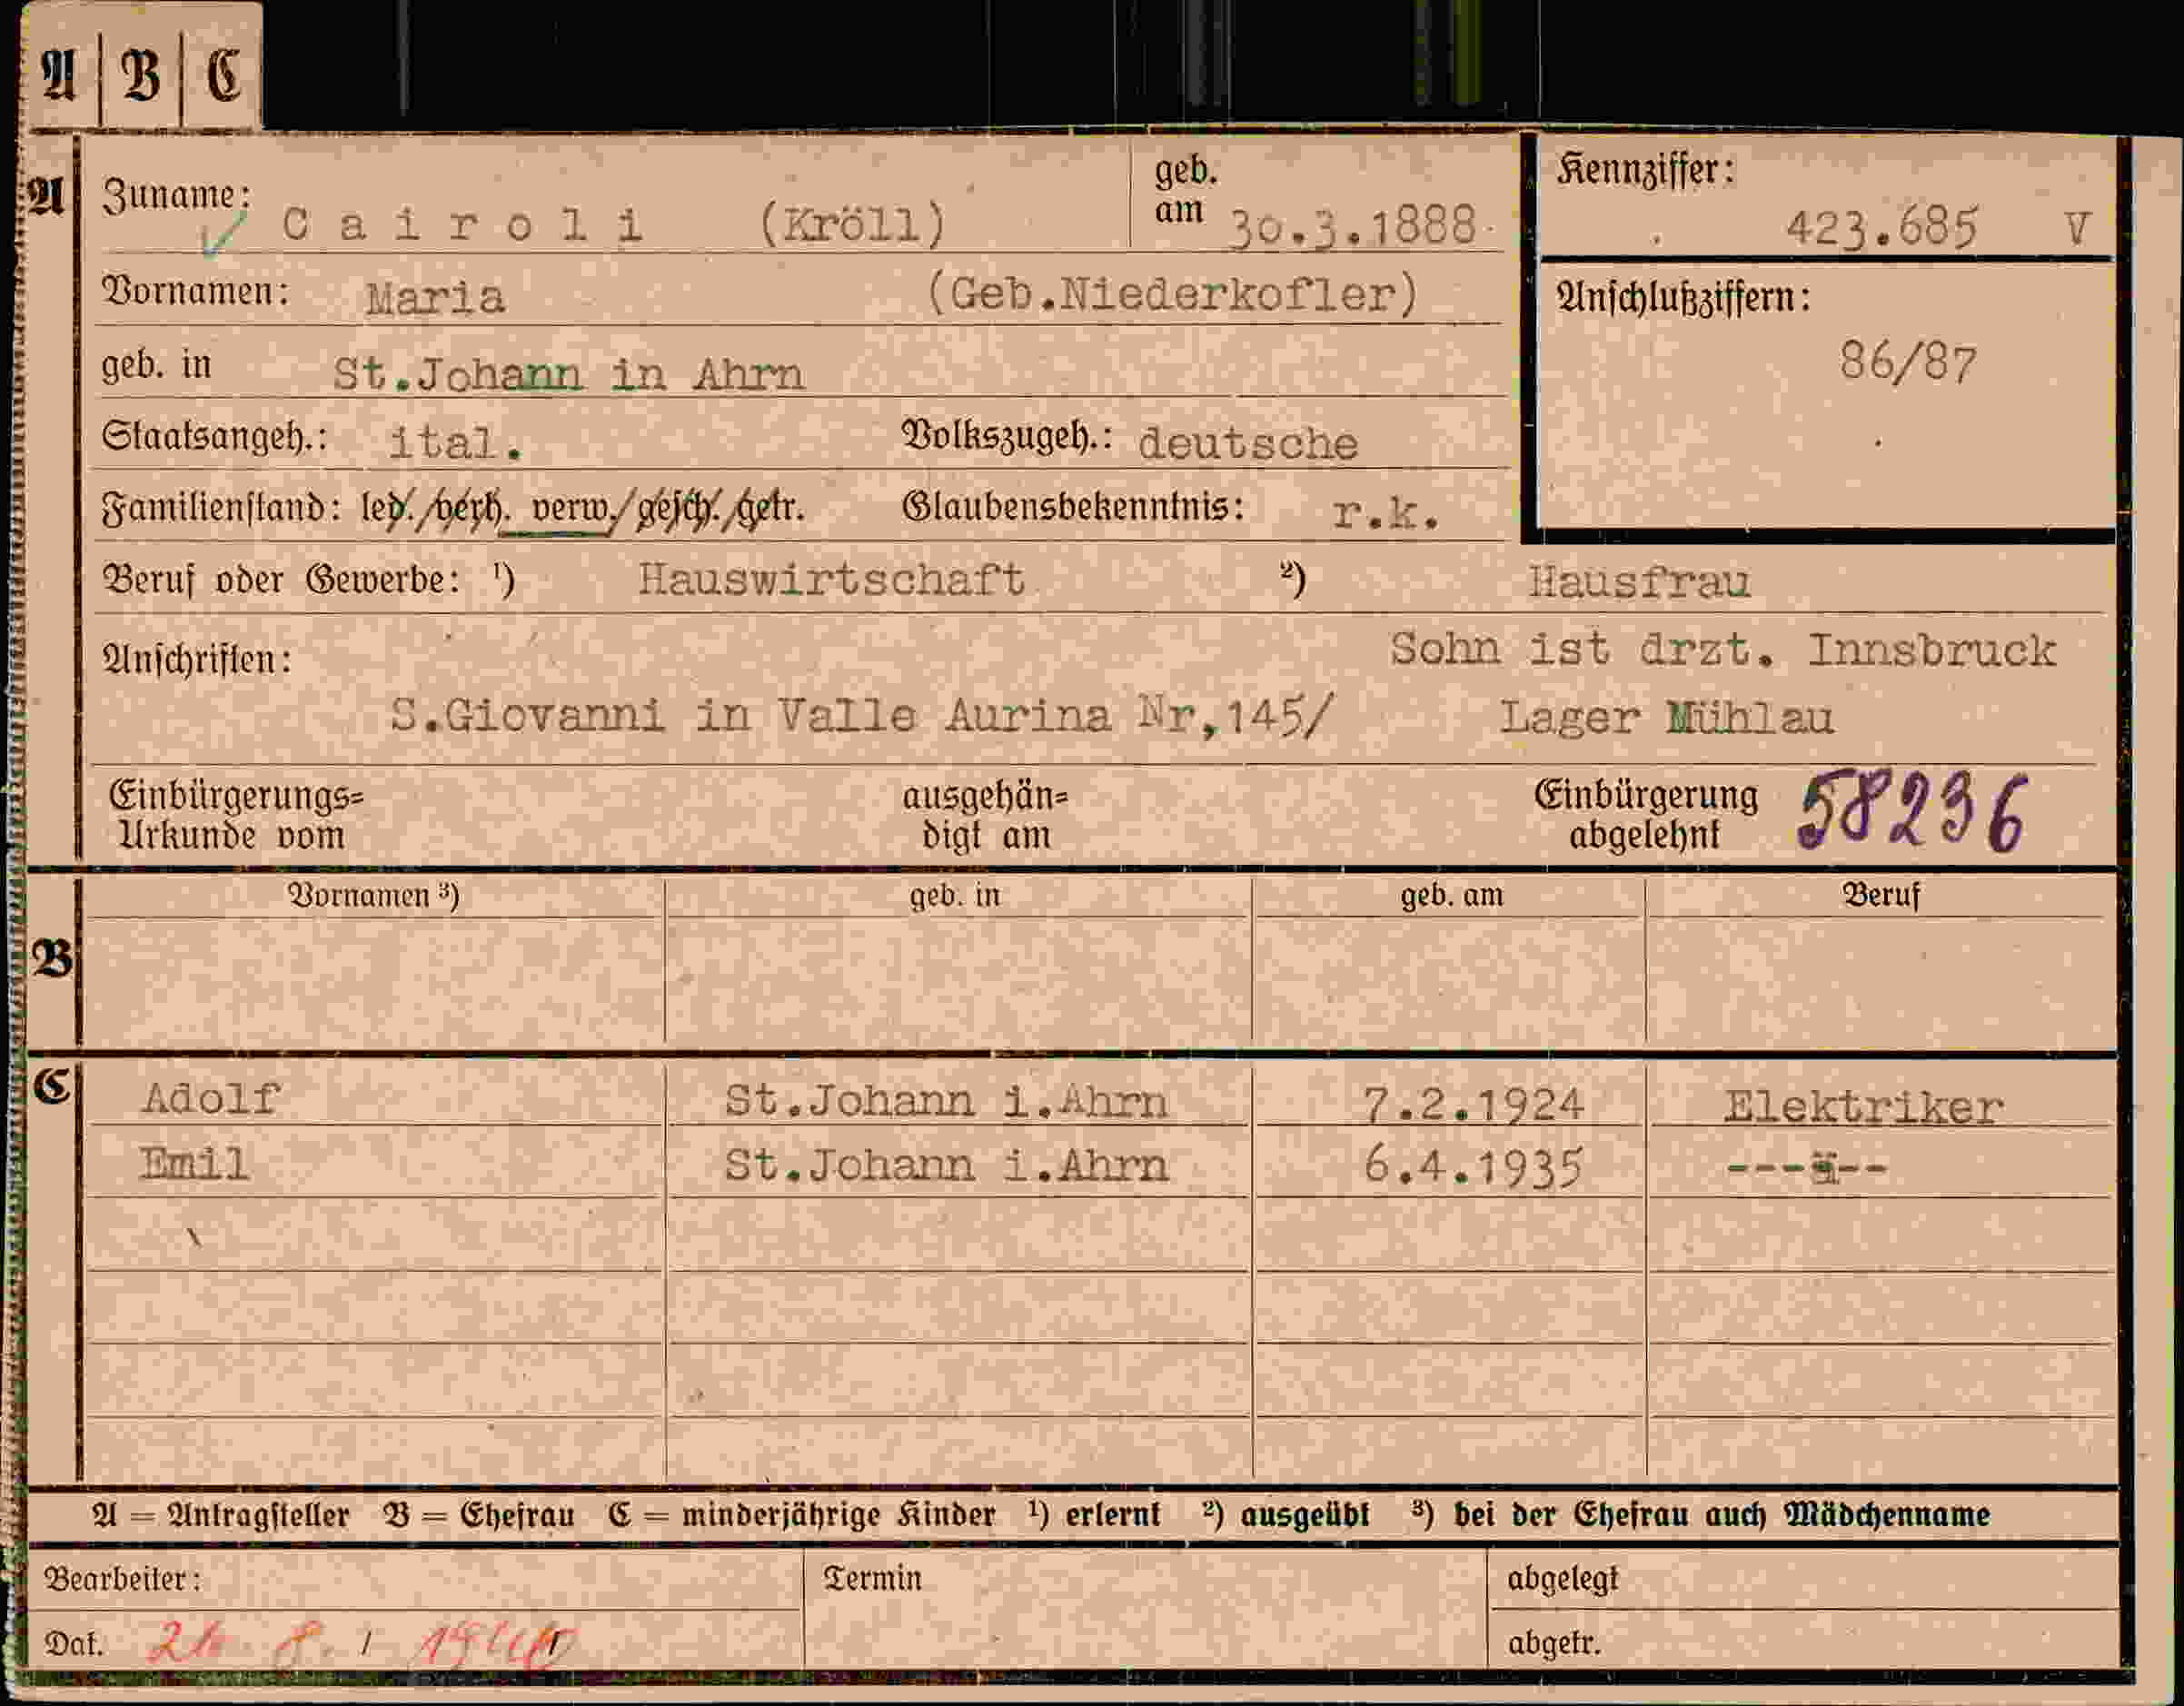 A | B | C
A
Zuname: C a i r o l i (Kröll) geb. am 30.3.1888
Kennziffer: 423.685 V
Vornamen: Maria (Geb.Niederkofler)
Anschlußziffern: 86/87
geb. in St.Johann in Ahrn
Staatsangeh.: ital. Volkszugeh.: deutsche
Familienstand: led./verh. verw./gesch./getr. Glaubensbekenntnis: r.k.
Beruf oder Gewerbe: ¹) Hauswirtschaft ²) Hausfrau
Anschriften: Sohn ist drzt. Innsbruck
S.Giovanni in Valle Aurina Nr,145/ Lager Mühlau
Einbürgerungs= ausgehän= Einbürgerung 58236
Urkunde vom digt am abgelehnt
Vornamen ³) geb. in geb. am Beruf
B
C Adolf St.Johann i.Ahrn 7.2.1924 Elektriker
Emil St.Johann i.Ahrn 6.4.1935
A = Antragsteller B = Ehefrau C = minderjährige Kinder ¹) erlernt ²) ausgeübt ³) bei der Ehefrau auch Mädchenname
Bearbeiter: Termin abgelegt
Dat. abgetr.